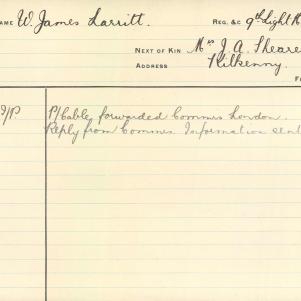 AME W. James Larritt. REG. &C 9th Light H
NEXT OF KIN Mrs J. A. Sheare
ADDRESS Kilkenny.
F
9/P. P/Cable, forwarded Commrs London.
Reply from Commrs. Information sent